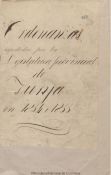 Ordenanzas
expedidas por la
Lejislatura provincial
de
Tunja
en 1854 i 1855